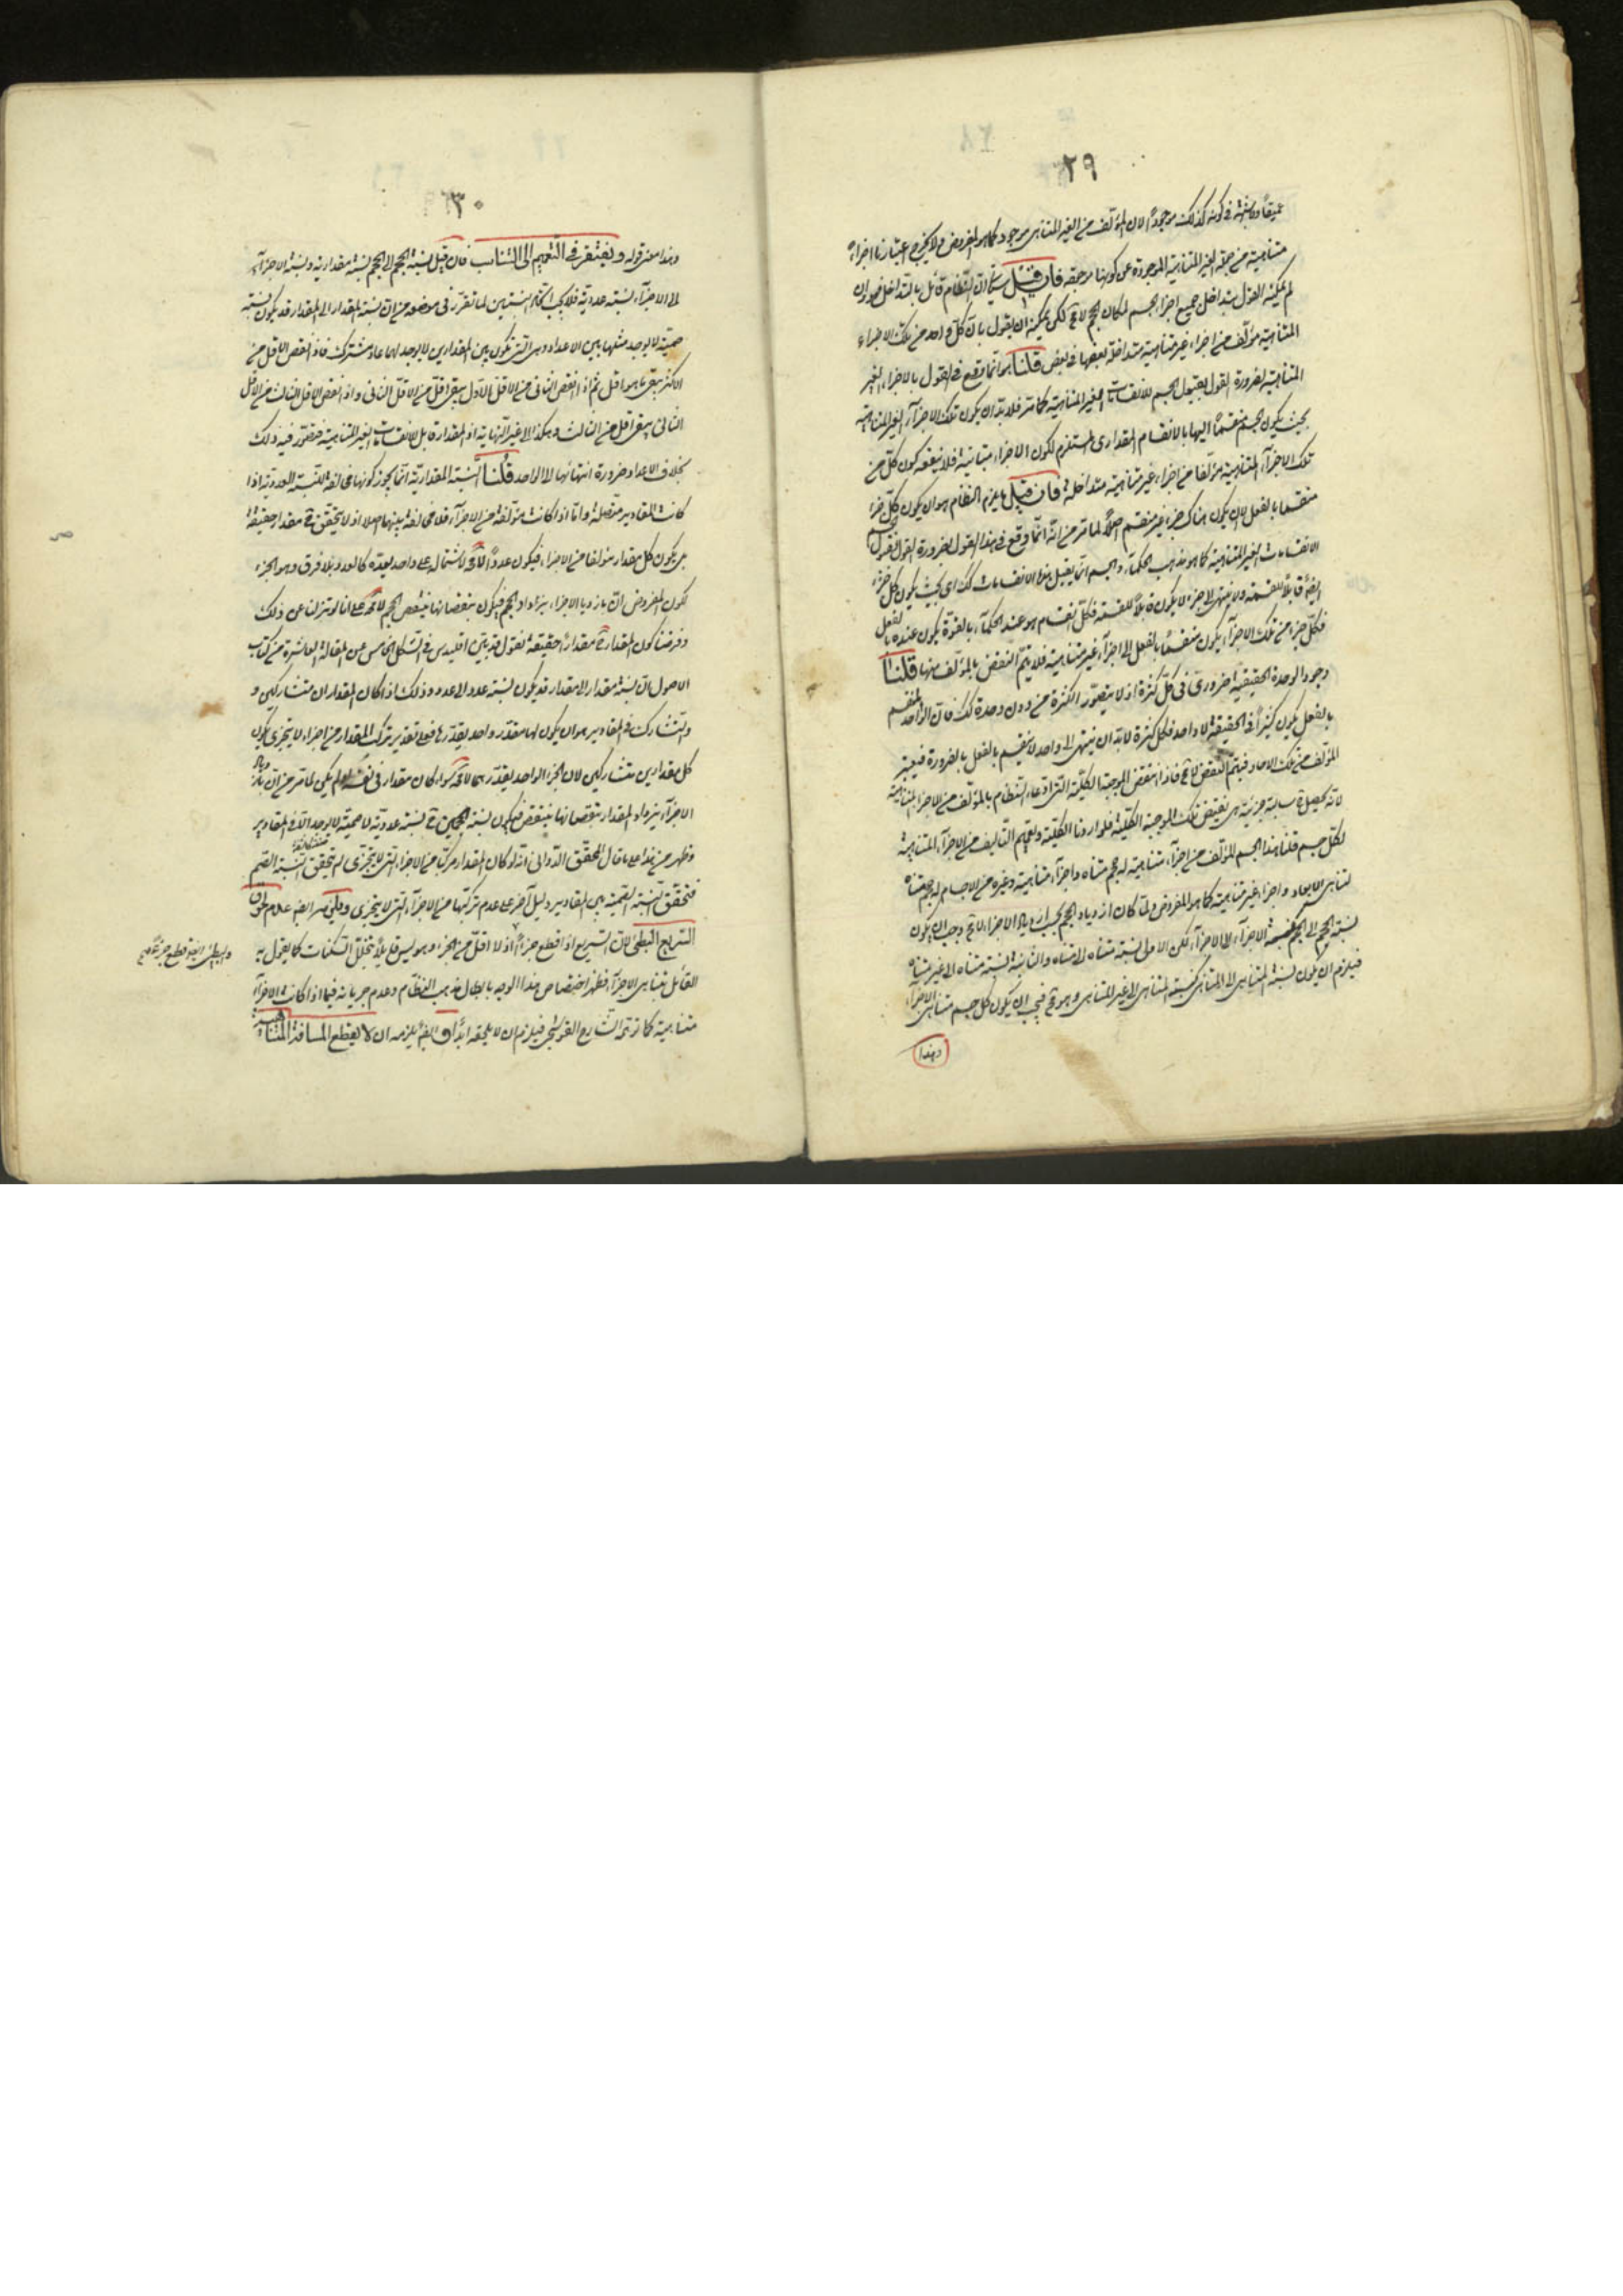 ٢٩
عميقا ولا شبهة في كونه كذلك موجودا لان المؤلف من الغير المتناهي موجود كما هو المفروض فلا يخرج اعتبارنا اجزاء
متناهية من جهة الغير المتناهية الموجودة عن كونها موجبة فان قيل سيما ان النظام قائل بالتداخل فهو وان
لم يمكنه القول بتداخل جميع اجزاء الجسم لمكان الحجم لا مح لكن يمكنه ان يقول بان كل واحد من تلك الاجزاء
المتناهية مؤلف من اجزاء غير متناهية متداخلة بعضها في بعض قلنا هو انما وقع في القول بالاجزاء الغير
المتناهية لضرورة القول بقبول الجسم للانقسامات الغير المتناهية كما مر فلا بد ان يكون تلك الاجزاء الغير المتناهية
بحيث يكون الجسم منقسما اليها بالانقسام المقداري المستلزم لكون الاجزاء متباينة فلا ينفعه كون كل من
تلك الاجزاء المتناهية مؤلفا من اجزاء غير متناهية متداخلة فان قيل ما يلزم النظام هو ان يكون كل جزء
منقسما بالفعل لا ان يكون هناك جزء غير منقسم اصلا لما مر من انه انما وقع في هذا القول لضرورة القول بقبول الجسم
الانقسامات الغير المتناهية كما هو مذهب الحكماء والجسم انما يقبل هذه الانقسامات كك اى بحيث يكون كل جزء
ايضا قابلا للقسمة ولا ينتهي الى جزء لا يكون قابلا للقسمة فكل انقسام هو عند الحكماء بالقوة يكون عنده بالفعل
فكل جزء من تلك الاجزاء يكون منقسما بالفعل الى اجزاء غير متناهية فلا يتم النقض بالمؤلف منها قلنا
وجود الوحدة الحقيقية ضروري في كل كثرة اذ لا يتصور الكثرة من دون وحدة كك فان الواحد المنقسم
بالفعل يكون كثيرا في الحقيقة لا واحد فكل كثرة لا بد ان ينتهى الى واحد لا ينقسم بالفعل بالضرورة فيعتبر
المؤلف من تلك الاحاد فيتم النقض لا مح فاذا انتقض الموجبة الكلية التي ادعاء النظام بالمؤلف من الاجزاء المتناهية
لانه يحصل سالبة جزئية هي نقيض تلك الموجبة الكلية فلو اردنا الكلية وتعميم التاليف من الاجزاء المتناهية
لكل جسم قلنا هذا الجسم المؤلف من اجزاء متناهية له حجم متناه واجزاء متناهية وغيره من الاجسام له حجم متناه
لتناهي الابعاد واجزاء غير متناهية كما هو المفروض ولما كان ازدياد الحجم بحسب ازدياد الاجزاء لا مح وجب ان يكون
نسبة الحجم الى الحجم كنسبة الاجزاء الى الاجزاء لكن الاولى نسبة متناه الى متناه والثانية نسبة متناه الى غير متناه
فيلزم ان يكون نسبة المتناهي الى المتناهي كنسبة المتناهي الى غير المتناهي وهو مح فيجب ان يكون كل جسم متناهي الاجزاء
وهذا
٣٠
وهذا معنى قوله ويفتقر في التعميم الى التناسب فان قيل نسبة الحجم الى الحجم نسبة مقدارية ونسبة الاجزاء
الى الاجزاء نسبة عددية فلا يجب اتحاد النسبتين لما تقرر في موضعه من ان نسبة المقدار الى المقدار قد يكون نسبة
صمية لا يوجد مثلها بين الاعداد وهي التي تكون بين المقدارين لا يوجد لهما عاد مشترك فاذا نقص الاقل من
الاكثر يبقى ما هو اقل ثم اذا نقص الباقى من الاقل الاول يبقى اقل من الاقل الثاني واذا نقص الاقل الثالث من الاقل
الثاني يبقى اقل من الثالث وهكذا الى غير النهاية اذ المقدار قابل للانقسامات الغير المتناهية فيتصور فيه ذلك
بخلاف الاعداد ضرورة انتهائها الى الواحد قلنا النسبة المقدارية انما يجوز كونها مخالفة للنسبة العددية اذا
كانت المقادير متصلة واما اذا كانت مؤلفة من الاجزاء فلا مخالفة بينهما اصلا اذ لا يتحقق ح مقدار حقيقة
بل يكون كل مقدار مؤلفا من الاجزاء فيكون عددا لا مح لاشتماله على واحد يعده كالعدد بلا فرق وهو الجزء
لكون المفروض ان بازدياد الاجزاء يزداد الحجم فيكون بنقصانها ينتقص الحجم لا مح على انا لو تنزلنا عن ذلك
وفرضنا كون المقدار ح مقدارا حقيقة نقول قد بين اقليدس في الشكل الخامس من المقالة العاشرة من كتاب
الاصول ان نسبة مقدار الى مقدار قد يكون نسبة عدد الى عدد وذلك اذا كان المقداران متشاركين و
والتشارك في المقادير هو ان يكون لها مقدر واحد يقدرها فعلى تقدير تركب المقدار من اجزاء لا يتجزى يكون
كل مقدارين متشاركين لان الجزء الواحد يقدرهما لا مح سواء كان مقدار في نفسه او لم يكن لما مر من ان بازدياد
الاجزاء يزداد المقدار وبنقصانها ينتقص فيكون نسبة الحجمين ح نسبة عددية لا صمية لا يوجد الا في المقادير
وظهر من هذا معنى ما قال المحقق الدواني انه لو كان المقدار مركبا من الاجزاء التي لا يتجزى لم يتحقق النسبة الصمية
فتحقق النسبة الصمية بين المقادير دليل آخر على عدم تركبها من الاجزاء التي لا يتجزى ويلزم ايضا عدم لحوق
السريع البطئ لان السريع اذا قطع جزءا اذ لا اقل من الجزء وهو ليس قايلا بتخلل السكنات كما يقول به
القائل بتناهي الاجزاء فظهر اختصاص هذا الوجه بابطال مذهب النظام وعدم جريانه فيما اذا كانت الاجزاء
متناهية كما توهمه الشارح القوشجي فيلزم ان لا يلحقه ابدا وايضا يلزمه ان لا يقطع المسافة المتناهية
والبطئ ايضا قطع جزءا